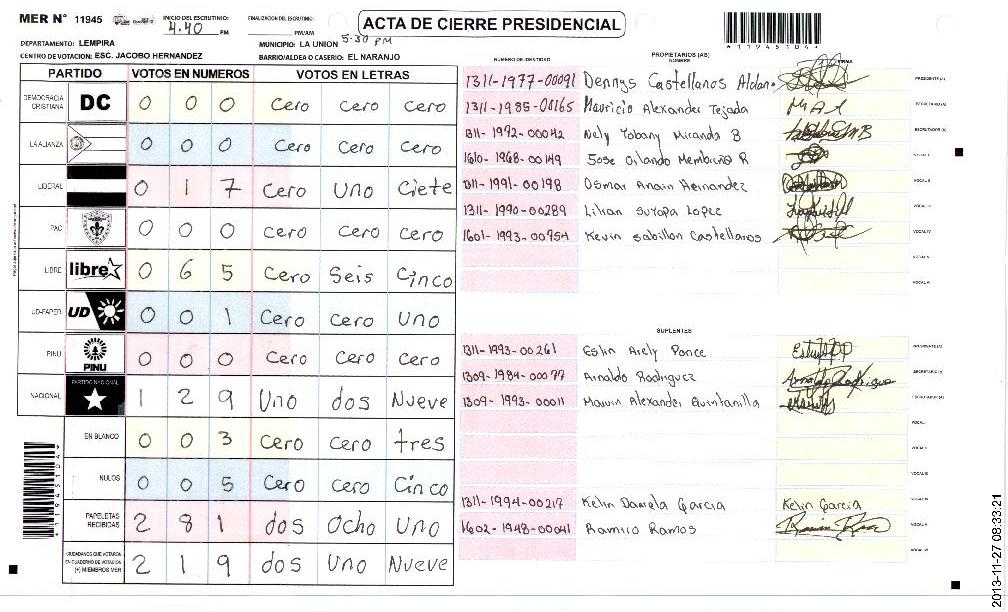 MER N° 11945 INICIO DEL ESCRUTINIO: 4.40 PM FINALIZACION DEL ESCRUTINIO: 5:30 PM PM/AM
ACTA DE CIERRE PRESIDENCIAL
*11945104*
DEPARTAMENTO: LEMPIRA MUNICIPIO: LA UNION
CENTRO DE VOTACION: ESC. JACOBO HERNANDEZ BARRIO/ALDEA O CASERIO: EL NARANJO
PARTIDO VOTOS EN NUMEROS VOTOS EN LETRAS
DEMOCRACIA CRISTIANA DC 0 0 0 Cero cero cero
LA ALIANZA 0 0 0 Cero cero cero
LIBERAL 0 1 7 Cero Uno Ciete
PAC 0 0 0 cero cero cero
LIBRE libre 0 6 5 Cero Seis Cinco
UD-FAPER UD 0 0 1 Cero Cero Uno
PINU PINU 0 0 0 Cero Cero cero
NACIONAL PARTIDO NACIONAL 1 2 9 Uno dos Nueve
EN BLANCO 0 0 3 Cero cero tres
NULOS 0 0 5 Cero cero Cinco
PAPELETAS RECIBIDAS 2 8 1 dos Ocho Uno
CIUDADANOS QUE VOTARON EN CUADERNO DE VOTACION (+) MIEMBROS MER 2 1 9 dos Uno Nueve
NUMERO DE IDENTIDAD PROPIETARIOS (AS) NOMBRE FIRMA
1311-1977-00091 Dennys Castellanos Aldana PRESIDENTE(A)
1311-1985-00165 Mauricio Alexander Tejada SECRETARIO (A)
1311-1992-00042 Nely Yobany Miranda B ESCRUTADOR (A)
1610-1968-00149 Jose Orlando Membreño R VOCAL I
1311-1991-00198 Osmar Anain Hernandez VOCAL II
1311-1990-00289 Lilian Suyapa Lopez VOCAL III
1601-1993-00954 Kevin Sabillon Castellanos VOCAL IV
VOCAL V
VOCAL VI
SUPLENTES
1311-1993-00261 Eslin Arely Ponce PRESIDENTE(A)
1309-1984-00077 Arnaldo Rodriguez Arnaldo Rodriguez SECRETARIO (A)
1309-1993-00011 Marvin Alexander Quintanilla ESCRUTADOR (A)
VOCAL I
VOCAL II
VOCAL III
1311-1994-00217 Kelin Daniela Garcia Kelin Garcia VOCAL IV
1602-1948-00041 Ramiro Ramos VOCAL V
VOCAL VI
*11945104*
2013-11-27 08:33:21